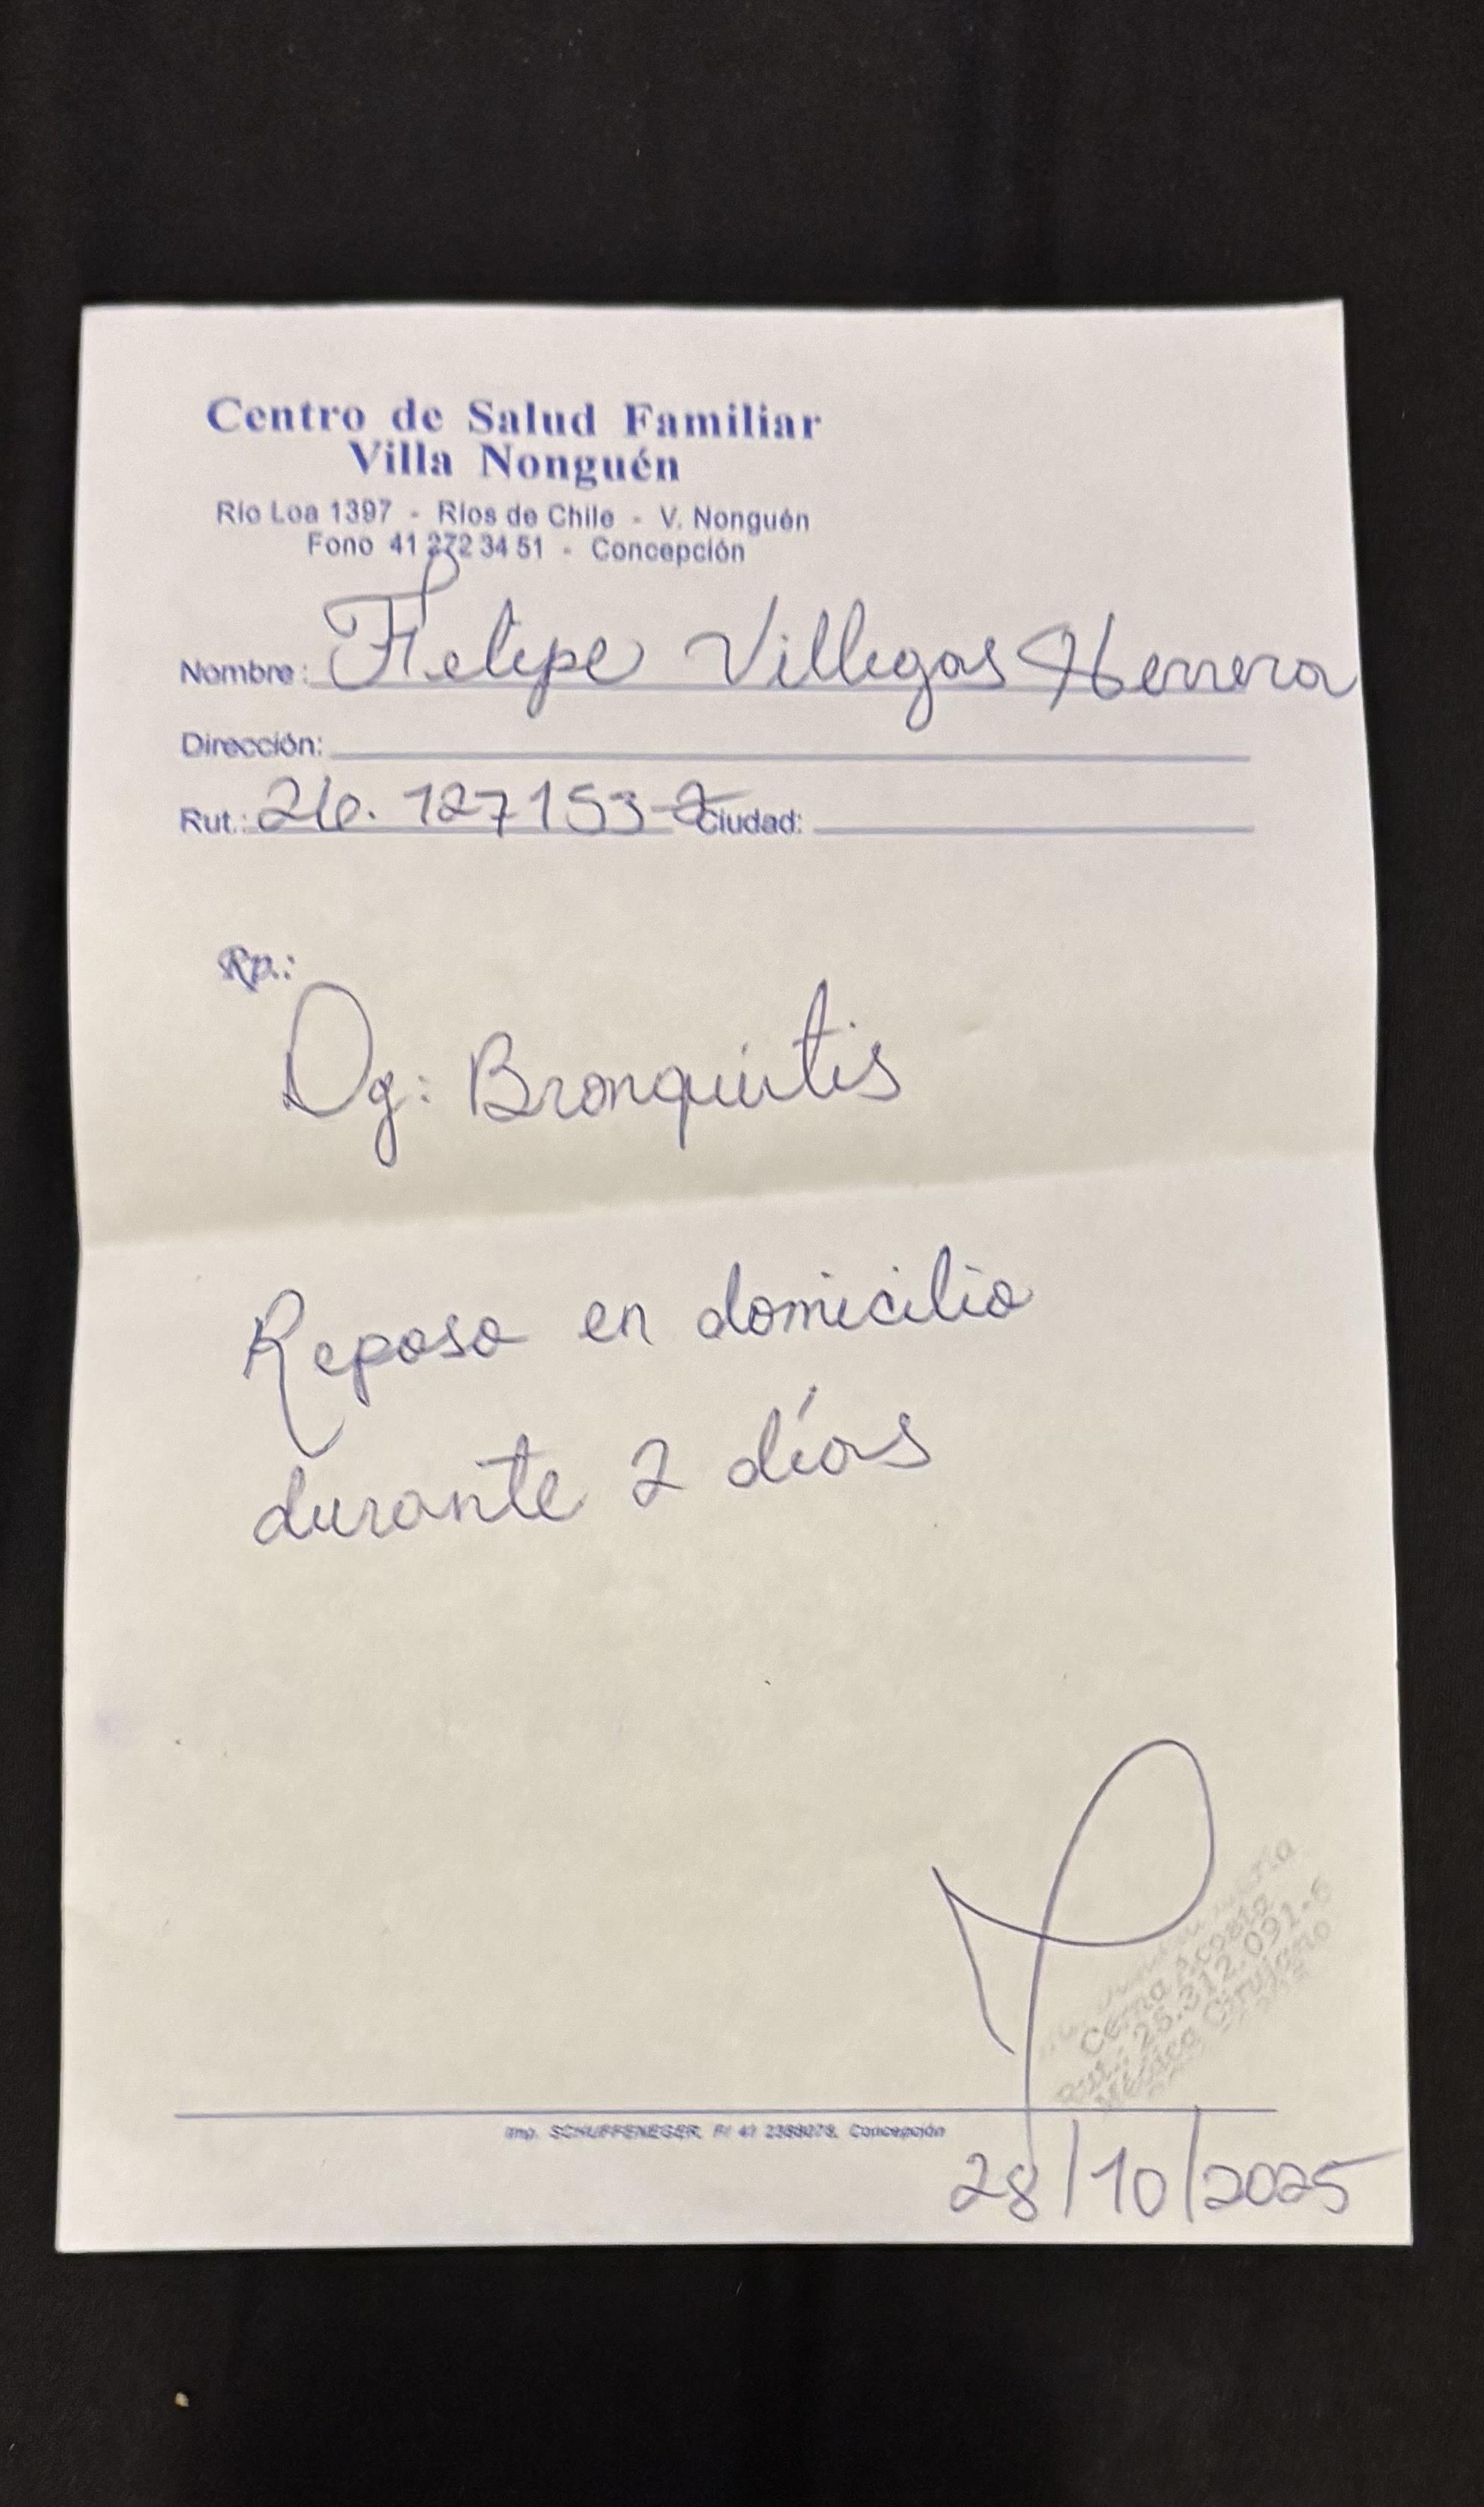 Centro de Salud Familiar
Villa Nonguén
Río Loa 1397 - Ríos de Chile - V. Nonguén
Fono 41 272 34 51 - Concepción
Nombre: Felipe Villegas Herrera
Dirección:
Rut.: 26.127153-2 Ciudad:
Rp.:
Dg: Bronquitis
Reposo en domicilio
durante 2 días
Cerna Acosta
Rut.: 26.312.091-6
Médico Cirujano
Imp. SCHUFFENEGER, F/ 41 2388078, Concepción
28/10/2025